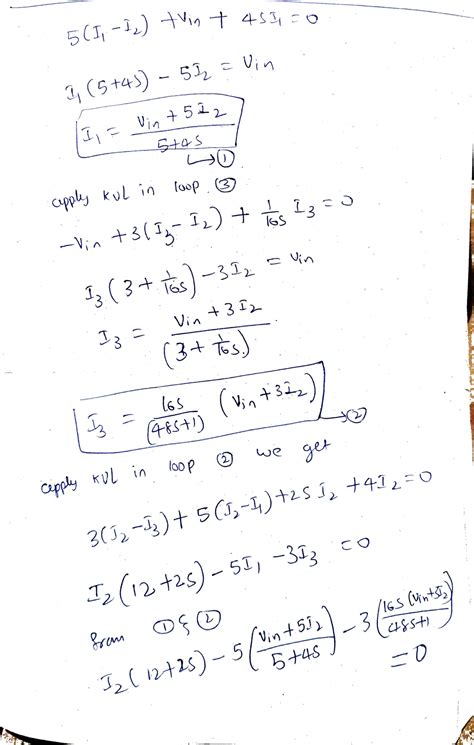 5(I₁-I₂) +Vin + 4SI₁ = 0
I₁(5+4S) - 5I₂ = Vin
I₁ = (Vin + 5I₂)/(5+4S)
↳①
apply KVL in loop ③
-Vin + 3(I₃-I₂) + 1/16S I₃ = 0
I₃(3 + 1/16S) - 3I₂ = Vin
I₃ = (Vin + 3I₂)/(3 + 1/16S)
I₃ = 16S/(48S+1) (Vin+3I₂)
→②
apply KVL in loop ② we get
3(I₂-I₃) + 5(I₂-I₁) + 2S I₂ + 4I₂ = 0
I₂(12+2S) - 5I₁ - 3I₃ = 0
from ① & ②
I₂(12+2S) - 5((Vin+5I₂)/(5+4S)) - 3(16S(Vin+3I₂)/(48S+1)) = 0